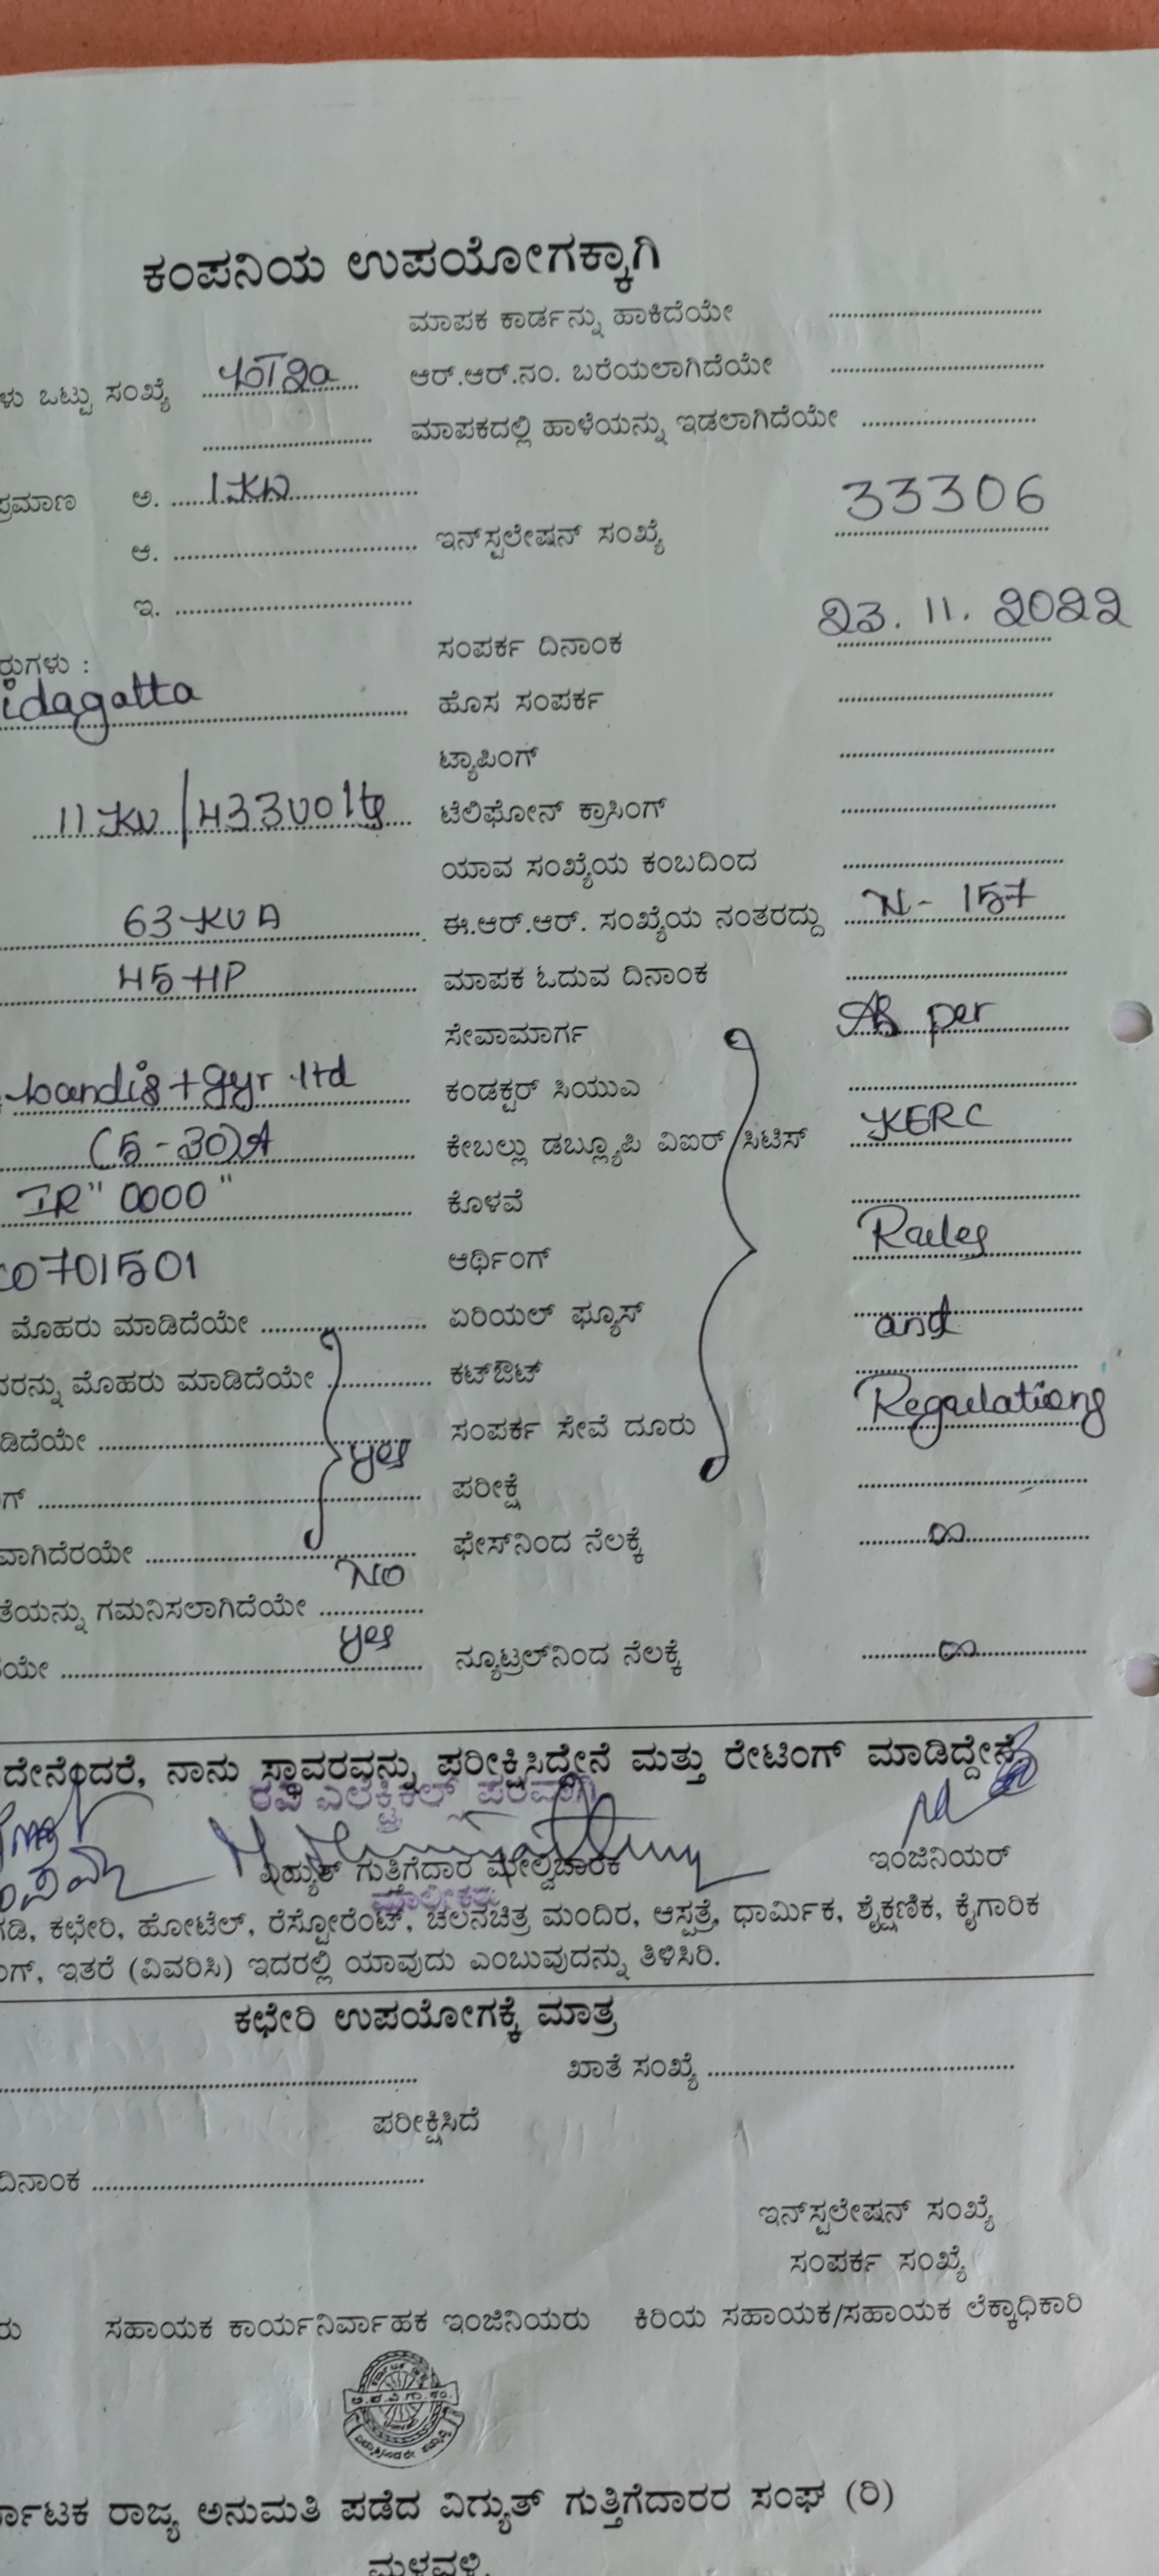 ಕಂಪನಿಯ ಉಪಯೋಗಕ್ಕಾಗಿ
ಮಾಪಕ ಕಾರ್ಡನ್ನು ಹಾಕಿದೆಯೇ
ಳು ಒಟ್ಟು ಸಂಖ್ಯೆ ಆರ್.ಆರ್.ನಂ. ಬರೆಯಲಾಗಿದೆಯೇ
ಮಾಪಕದಲ್ಲಿ ಹಾಳೆಯನ್ನು ಇಡಲಾಗಿದೆಯೇ
ಪ್ರಮಾಣ ಅ. 1KW
ಆ. ಇನ್‌ಸ್ಟಲೇಷನ್ ಸಂಖ್ಯೆ 33306
ಇ.
ಸಂಪರ್ಕ ದಿನಾಂಕ 23.11.2022
ರುಗಳು :
idagatta ಹೊಸ ಸಂಪರ್ಕ
ಟ್ಯಾಪಿಂಗ್
11KV/433Volts ಟೆಲಿಫೋನ್ ಕ್ರಾಸಿಂಗ್
ಯಾವ ಸಂಖ್ಯೆಯ ಕಂಬದಿಂದ
63KVA ಈ.ಆರ್.ಆರ್. ಸಂಖ್ಯೆಯ ನಂತರದ್ದು N-157
45HP ಮಾಪಕ ಓದುವ ದಿನಾಂಕ
ಸೇವಾಮಾರ್ಗ As per
Landis+gyr ltd ಕಂಡಕ್ಟರ್ ಸಿಯುಎ
(5-30)A ಕೇಬಲ್ಲು ಡಬ್ಲ್ಯೂಪಿ ವಿಐರ್ ಸಿಟಿಸ್ KERC
IR"0000" ಕೊಳವೆ
0701501 ಆರ್ಥಿಂಗ್ Rules
ಮೊಹರು ಮಾಡಿದೆಯೇ ಏರಿಯಲ್ ಫ್ಯೂಸ್ and
ವರನ್ನು ಮೊಹರು ಮಾಡಿದೆಯೇ ಕಟ್‌ಔಟ್ Regulations
ಡಿದೆಯೇ yes ಸಂಪರ್ಕ ಸೇವೆ ದೂರು
ಗ್ ಪರೀಕ್ಷೆ
ವಾಗಿದೆರಯೇ ಫೇಸ್‌ನಿಂದ ನೆಲಕ್ಕೆ ∞
ತೆಯನ್ನು ಗಮನಿಸಲಾಗಿದೆಯೇ No
ಯೇ yes ನ್ಯೂಟ್ರಲ್‌ನಿಂದ ನೆಲಕ್ಕೆ ∞
ದೇನೆಂದರೆ, ನಾನು ಸ್ಥಾವರವನ್ನು ಪರೀಕ್ಷಿಸಿದ್ದೇನೆ ಮತ್ತು ರೇಟಿಂಗ್ ಮಾಡಿದ್ದೇನೆ
ರವಿ ಎಲೆಕ್ಟ್ರಿಕಲ್ಸ್ ಪರವಾಗಿ
ವಿದ್ಯುತ್ ಗುತ್ತಿಗೆದಾರ ಮೇಲ್ವಿಚಾರಕ ಇಂಜಿನಿಯರ್
ಮಾಲೀಕರು
ಗಡಿ, ಕಛೇರಿ, ಹೋಟೆಲ್, ರೆಸ್ಟೋರೆಂಟ್, ಚಲನಚಿತ್ರ ಮಂದಿರ, ಆಸ್ಪತ್ರೆ, ಧಾರ್ಮಿಕ, ಶೈಕ್ಷಣಿಕ, ಕೈಗಾರಿಕ
ಂಗ್, ಇತರೆ (ವಿವರಿಸಿ) ಇದರಲ್ಲಿ ಯಾವುದು ಎಂಬುವುದನ್ನು ತಿಳಿಸಿರಿ.
ಕಛೇರಿ ಉಪಯೋಗಕ್ಕೆ ಮಾತ್ರ
ಖಾತೆ ಸಂಖ್ಯೆ
ಪರೀಕ್ಷಿಸಿದೆ
ದಿನಾಂಕ
ಇನ್‌ಸ್ಟಲೇಷನ್ ಸಂಖ್ಯೆ
ಸಂಪರ್ಕ ಸಂಖ್ಯೆ
ರು ಸಹಾಯಕ ಕಾರ್ಯನಿರ್ವಾಹಕ ಇಂಜಿನಿಯರು ಕಿರಿಯ ಸಹಾಯಕ/ಸಹಾಯಕ ಲೆಕ್ಕಾಧಿಕಾರಿ
ರ್ನಾಟಕ ರಾಜ್ಯ ಅನುಮತಿ ಪಡೆದ ವಿದ್ಯುತ್ ಗುತ್ತಿಗೆದಾರರ ಸಂಘ (ರಿ)
ಮಳವಳ್ಳಿ.